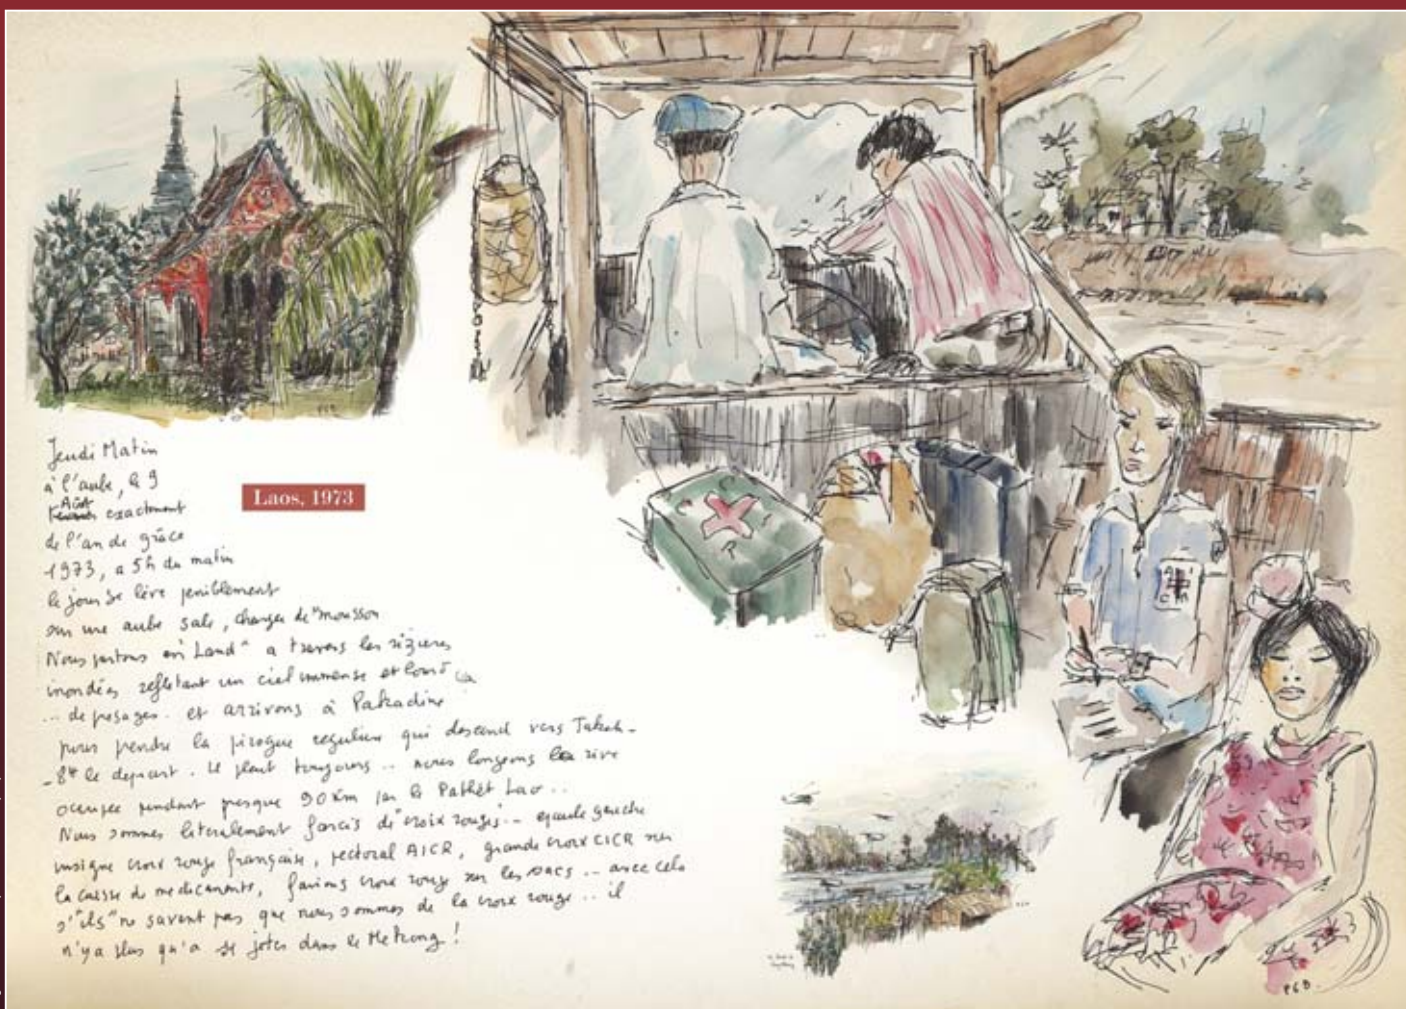 Jeudi Matin
à l'aube, le 9
Août exactement
de l'an de grâce
1973, a 5h du matin
le jour se lève peniblement
sur une aube sale, chargée de "mousson
Nous partons en "Land" a travers les rizieres
inondées refletant un ciel immense et lourd
... de presages. et arrivons à Paksadine
pour prendre la pirogue reguliere qui descend vers Takek-
-8h le depart. Il pleut toujours .. nous longeons la rive
occupée pendant presque 90 km par le Pathèt Lao ..
Nous sommes literalement farcis de "croix rouges" .. epaule gauche
insigne croix rouge française, pectoral AICR, grande croix CICR sur
la caisse de medicaments, fanions croix rouge sur les sacs .. avec cela
s'"ils" ne savent pas que nous sommes de la croix rouge .. il
n'y a plus qu'a se jeter dans le Mekong !
Laos, 1973
C I C R
PGB
PGB